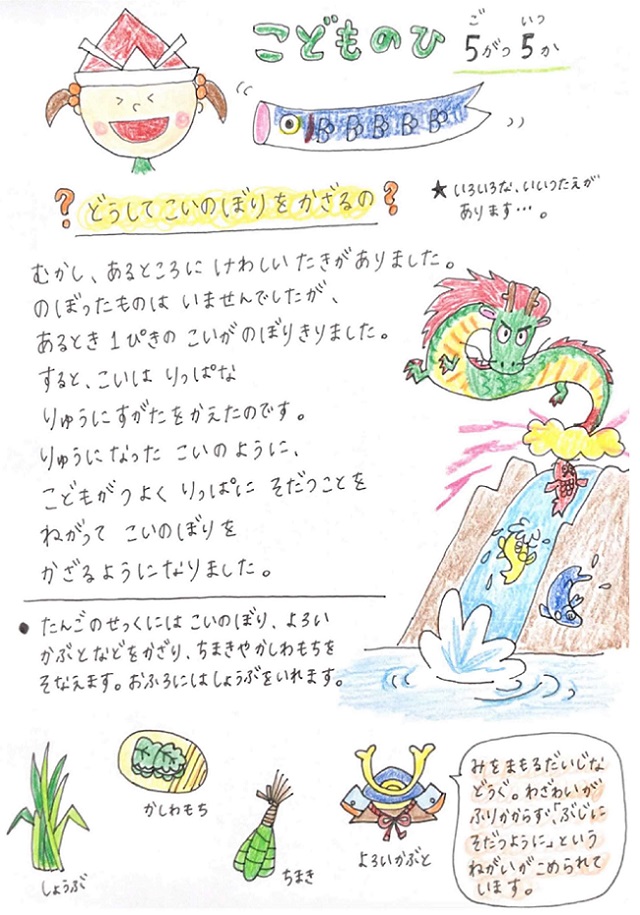 こどものひ
ご いつ
5がつ5か
? どうしてこいのぼりをかざるの ?
★いろいろな、いいつたえが
あります…。
むかし、あるところに けわしい たきがありました。
のぼったものは いませんでしたが、
あるとき 1ぴきの こいが のぼりきりました。
すると、こいは りっぱな
りゅうにすがたをかえたのです。
りゅうになった こいのように、
こどもがつよく りっぱに そだつことを
ねがって こいのぼりを
かざるようになりました。
● たんごのせっくには こいのぼり、よろい
かぶとなどをかざり、ちまきやかしわもちを
そなえます。おふろにはしょうぶをいれます。
しょうぶ
かしわもち
ちまき
よろいかぶと
みをまもるだいじな
どうぐ。わざわいが
ふりかからず、「ぶじに
そだつように」という
ねがいがこめられて
います。